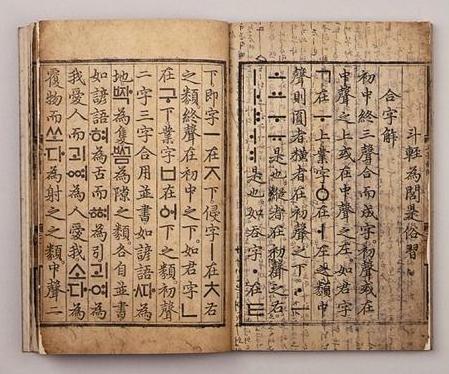 斗輕為閭是俗習
合字解
初中終三聲合而成字。初聲或在
中聲之上或在中聲之左。如君字
ㄱ在ㅜ上業字ㆁ在ㅓ左之類。中
聲則圓者橫者在初聲之下ㆍㅡ
ㅗㅛㅜㅠ是也。縱者在初聲之右
ㅣㅏㅑㅓㅕ是也。如吞字ㆍ在ㅌ
下即字ㅡ在ㅈ下侵字ㅣ在ㅊ右
之類。終聲在初中之下。如君字ㄴ
在구下業字ㅂ在ᅌᅥ下之類。初聲
二字三字合用並書如諺語ᄯᅡ為
地ᄧᅡᆨ為隻ᄢᅳᆷ為隙之類。各自並書
如諺語혀為舌而ᅘᅧ為引괴여為
我愛人而괴ᅇᅧ為人愛我소다為
覆物而쏘다為射之之類。中聲二